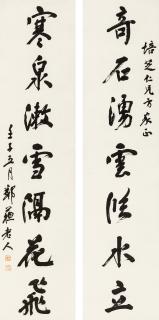 奇石湧雲從水立
培芝仁兄方家正
寒泉漱雪隔花飛
壬子五月鄭蘇老人